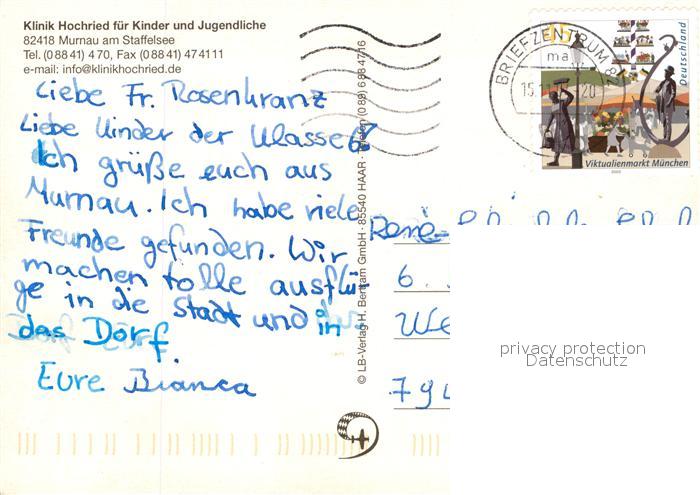 Klinik Hochried für Kinder und Jugendliche
82418 Murnau am Staffelsee
Tel. (0 88 41) 4 70, Fax (0 88 41) 47 41 11
e-mail: info@klinikhochried.de
Liebe Fr. Rosenkranz
Liebe Kinder der Klasse 6
Ich grüße euch aus
Murnau. Ich habe viele
Freunde gefunden. Wir
machen tolle ausflü
ge in die Stadt und in
das Dorf.
Eure Bianca
© LB-Verlag H. Bertram GmbH · 85540 HAAR · Telefon (0 89) 6 88 47 16
BRIEFZENTRUM 8
ma
20
Deutschland
Viktualienmarkt München
2003
René-
6.
We
794
privacy protection
Datenschutz